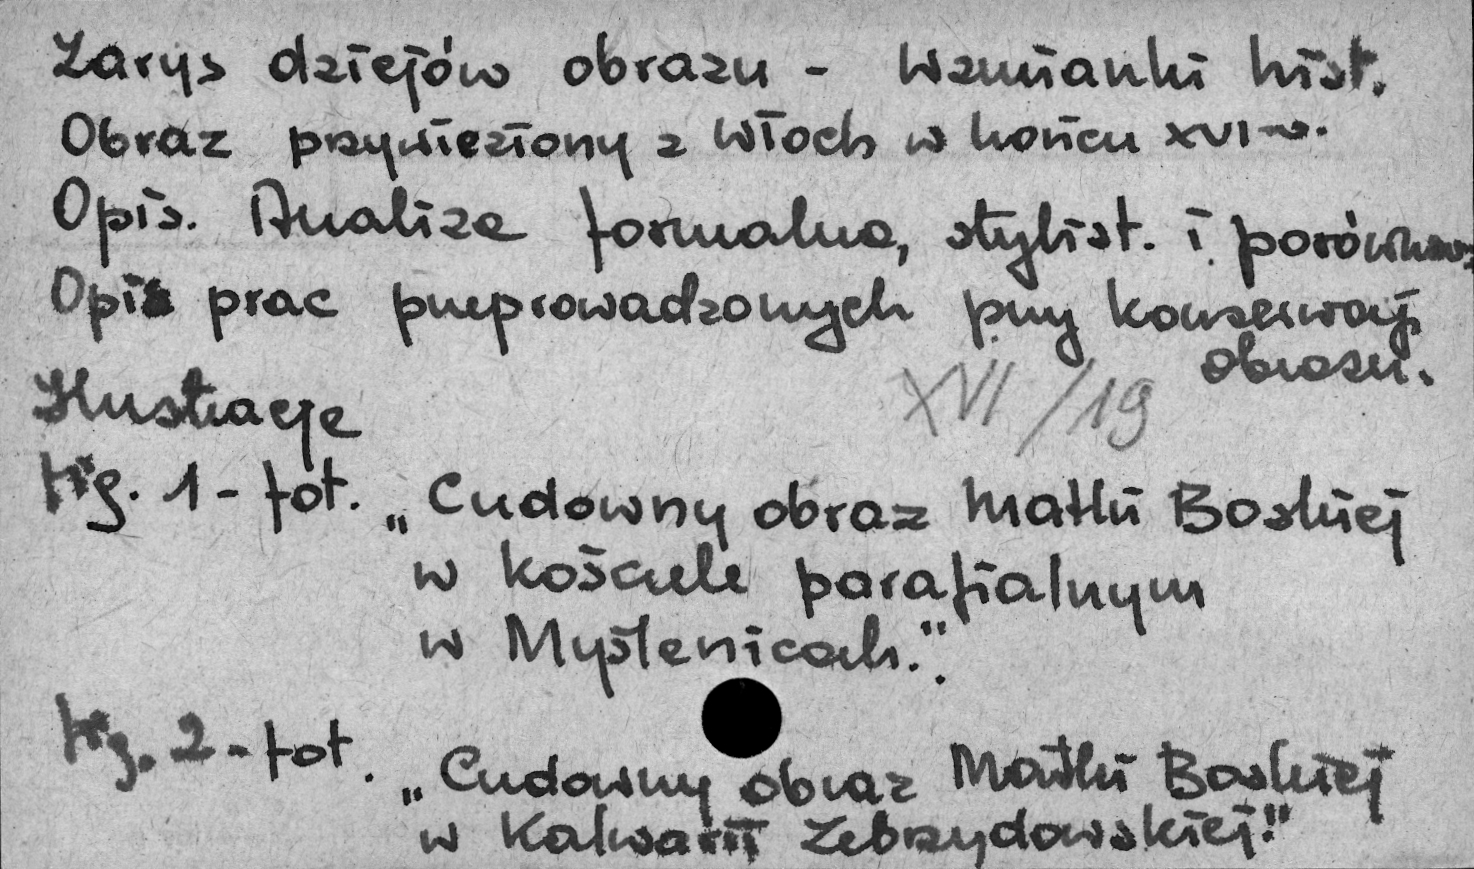 Zarys dziejów obrazu - Wzmianki hist.
Obraz przywieziony z Włoch w końcu XVI w.
Opis. Analiza formalna, stylist. i porównaw.
Opis prac przeprowadzonych przy konserwacji
obrazu.
XVI/19
Ilustracje
Fig. 1 - fot. „Cudowny obraz Matki Boskiej
w kościele parafialnym
w Myślenicach.".
Fig. 2 - fot. „Cudowny obraz Matki Boskiej
w Kalwarii Zebrzydowskiej."